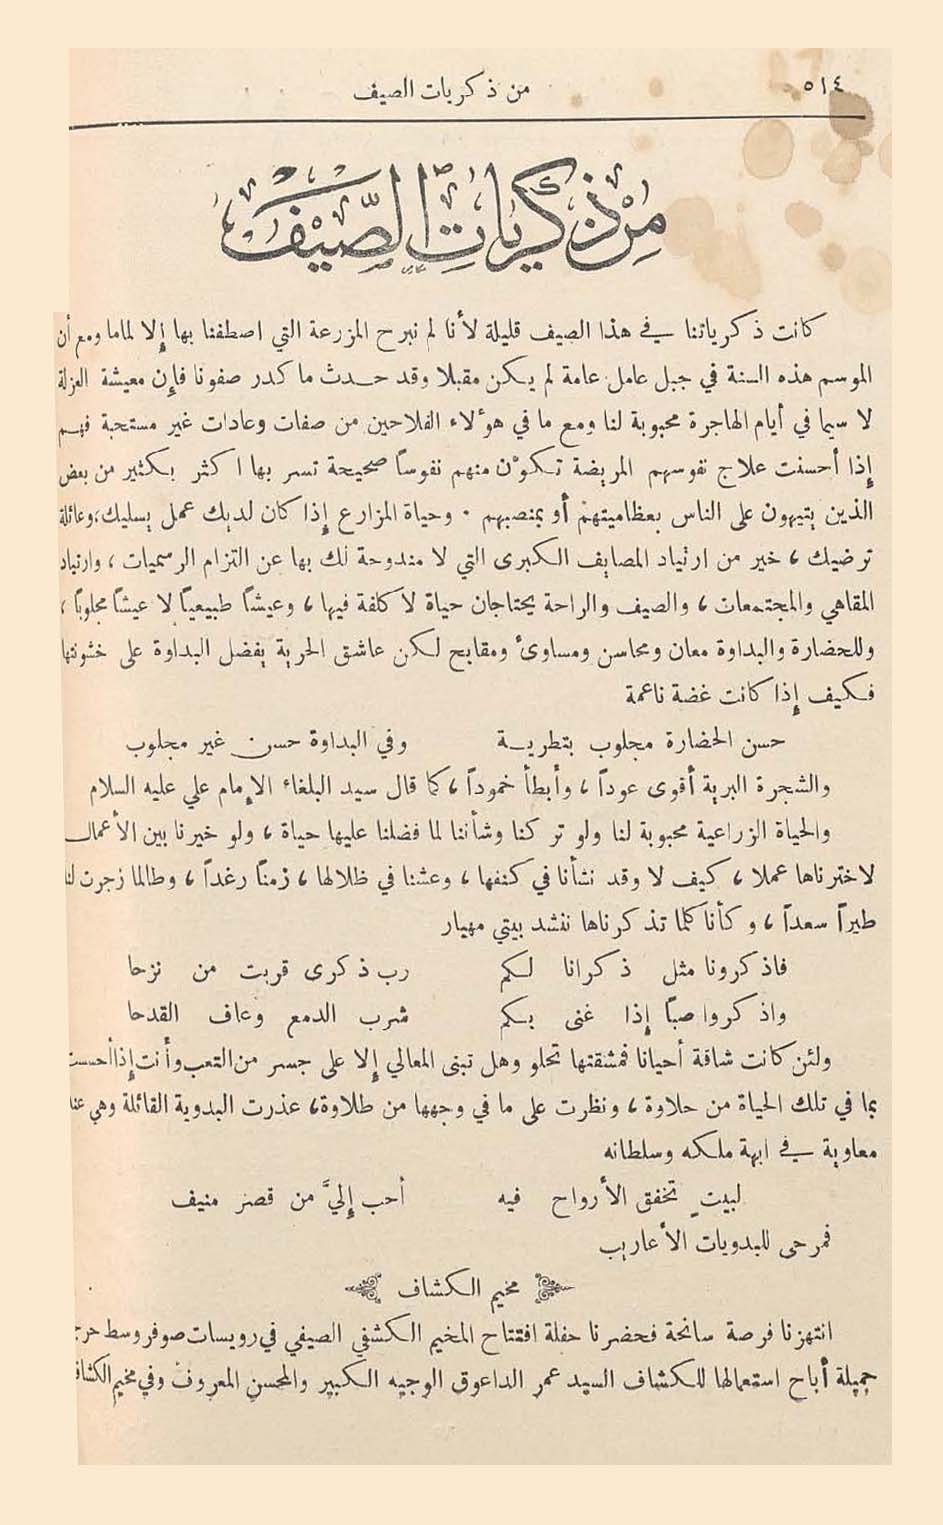 ٥١٤
من ذكريات الصيف
من ذكريات الصيف
كانت ذكرياتنا في هذا الصيف قليلة لأنا لم نبرح المزرعة التي اصطفنا بها إلا لماما ومع أن
الموسم هذه السنة في جبل عامل عامة لم يكن مقبلا وقد حدث ما كدر صفونا فإن معيشة العزلة
لا سيما في أيام الهاجرة محبوبة لنا ومع ما في هؤلاء الفلاحين من صفات وعادات غير مستحبة فهم
إذا أحسنت علاج نفوسهم المريضة تكوّن منهم نفوساً صحيحة تسر بها اكثر بكثير من بعض
الذين يتيهون على الناس بعظاميتهم أو بمنصبهم . وحياة المزارع إذا كان لديك عمل يسليك، وعائلة
ترضيك ، خير من ارتياد المصايف الكبرى التي لا مندوحة لك بها عن التزام الرسميات ، وارتياد
المقاهي والمجتمعات ، والصيف والراحة يحتاجان حياة لا كلفة فيها ، وعيشاً طبيعياً لا عيشاً مجلوباً ،
وللحضارة والبداوة معان ومحاسن ومساوئ ومقابح لكن عاشق الحرية يفضل البداوة على خشونتها
فكيف إذا كانت غضة ناعمة
حسن الحضارة مجلوب بتطرية وفي البداوة حسن غير مجلوب
والشجرة البرية أقوى عوداً ، وأبطأ خموداً ، كما قال سيد البلغاء الإمام علي عليه السلام
والحياة الزراعية محبوبة لنا ولو تركنا وشأننا لما فضلنا عليها حياة ، ولو خيرنا بين الأعمال
لاخترناها عملا ، كيف لا وقد نشأنا في كنفها ، وعشنا في ظلالها ، زمناً رغداً ، وطالما زجرت لنا
طيراً سعداً ، وكأنا كلما تذكرناها ننشد بيتي مهيار
فاذكرونا مثل ذكرانا لكم رب ذكرى قربت من نزحا
واذكروا صباً إذا غنى بكم شرب الدمع وعاف القدحا
ولئن كانت شاقة أحيانا فمشقتها تحلو وهل تبنى المعالي إلا على جسر من التعب وأنت إذا أحسست
بما في تلك الحياة من حلاوة ، ونظرت على ما في وجهها من طلاوة، عذرت البدوية القائلة وهي عند
معاوية في ابهة ملكه وسلطانه
لبيت تخفق الأرواح فيه أحب إليَّ من قصر منيف
فمرحى للبدويات الأعاريب
مخيم الكشاف
انتهزنا فرصة سانحة فحضرنا حفلة افتتاح المخيم الكشفي الصيفي في رويسات صوفر وسط حرج
جميلة أباح استعمالها للكشاف السيد عمر الداعوق الوجيه الكبير والمحسن المعروف وفي مخيم الكشاف